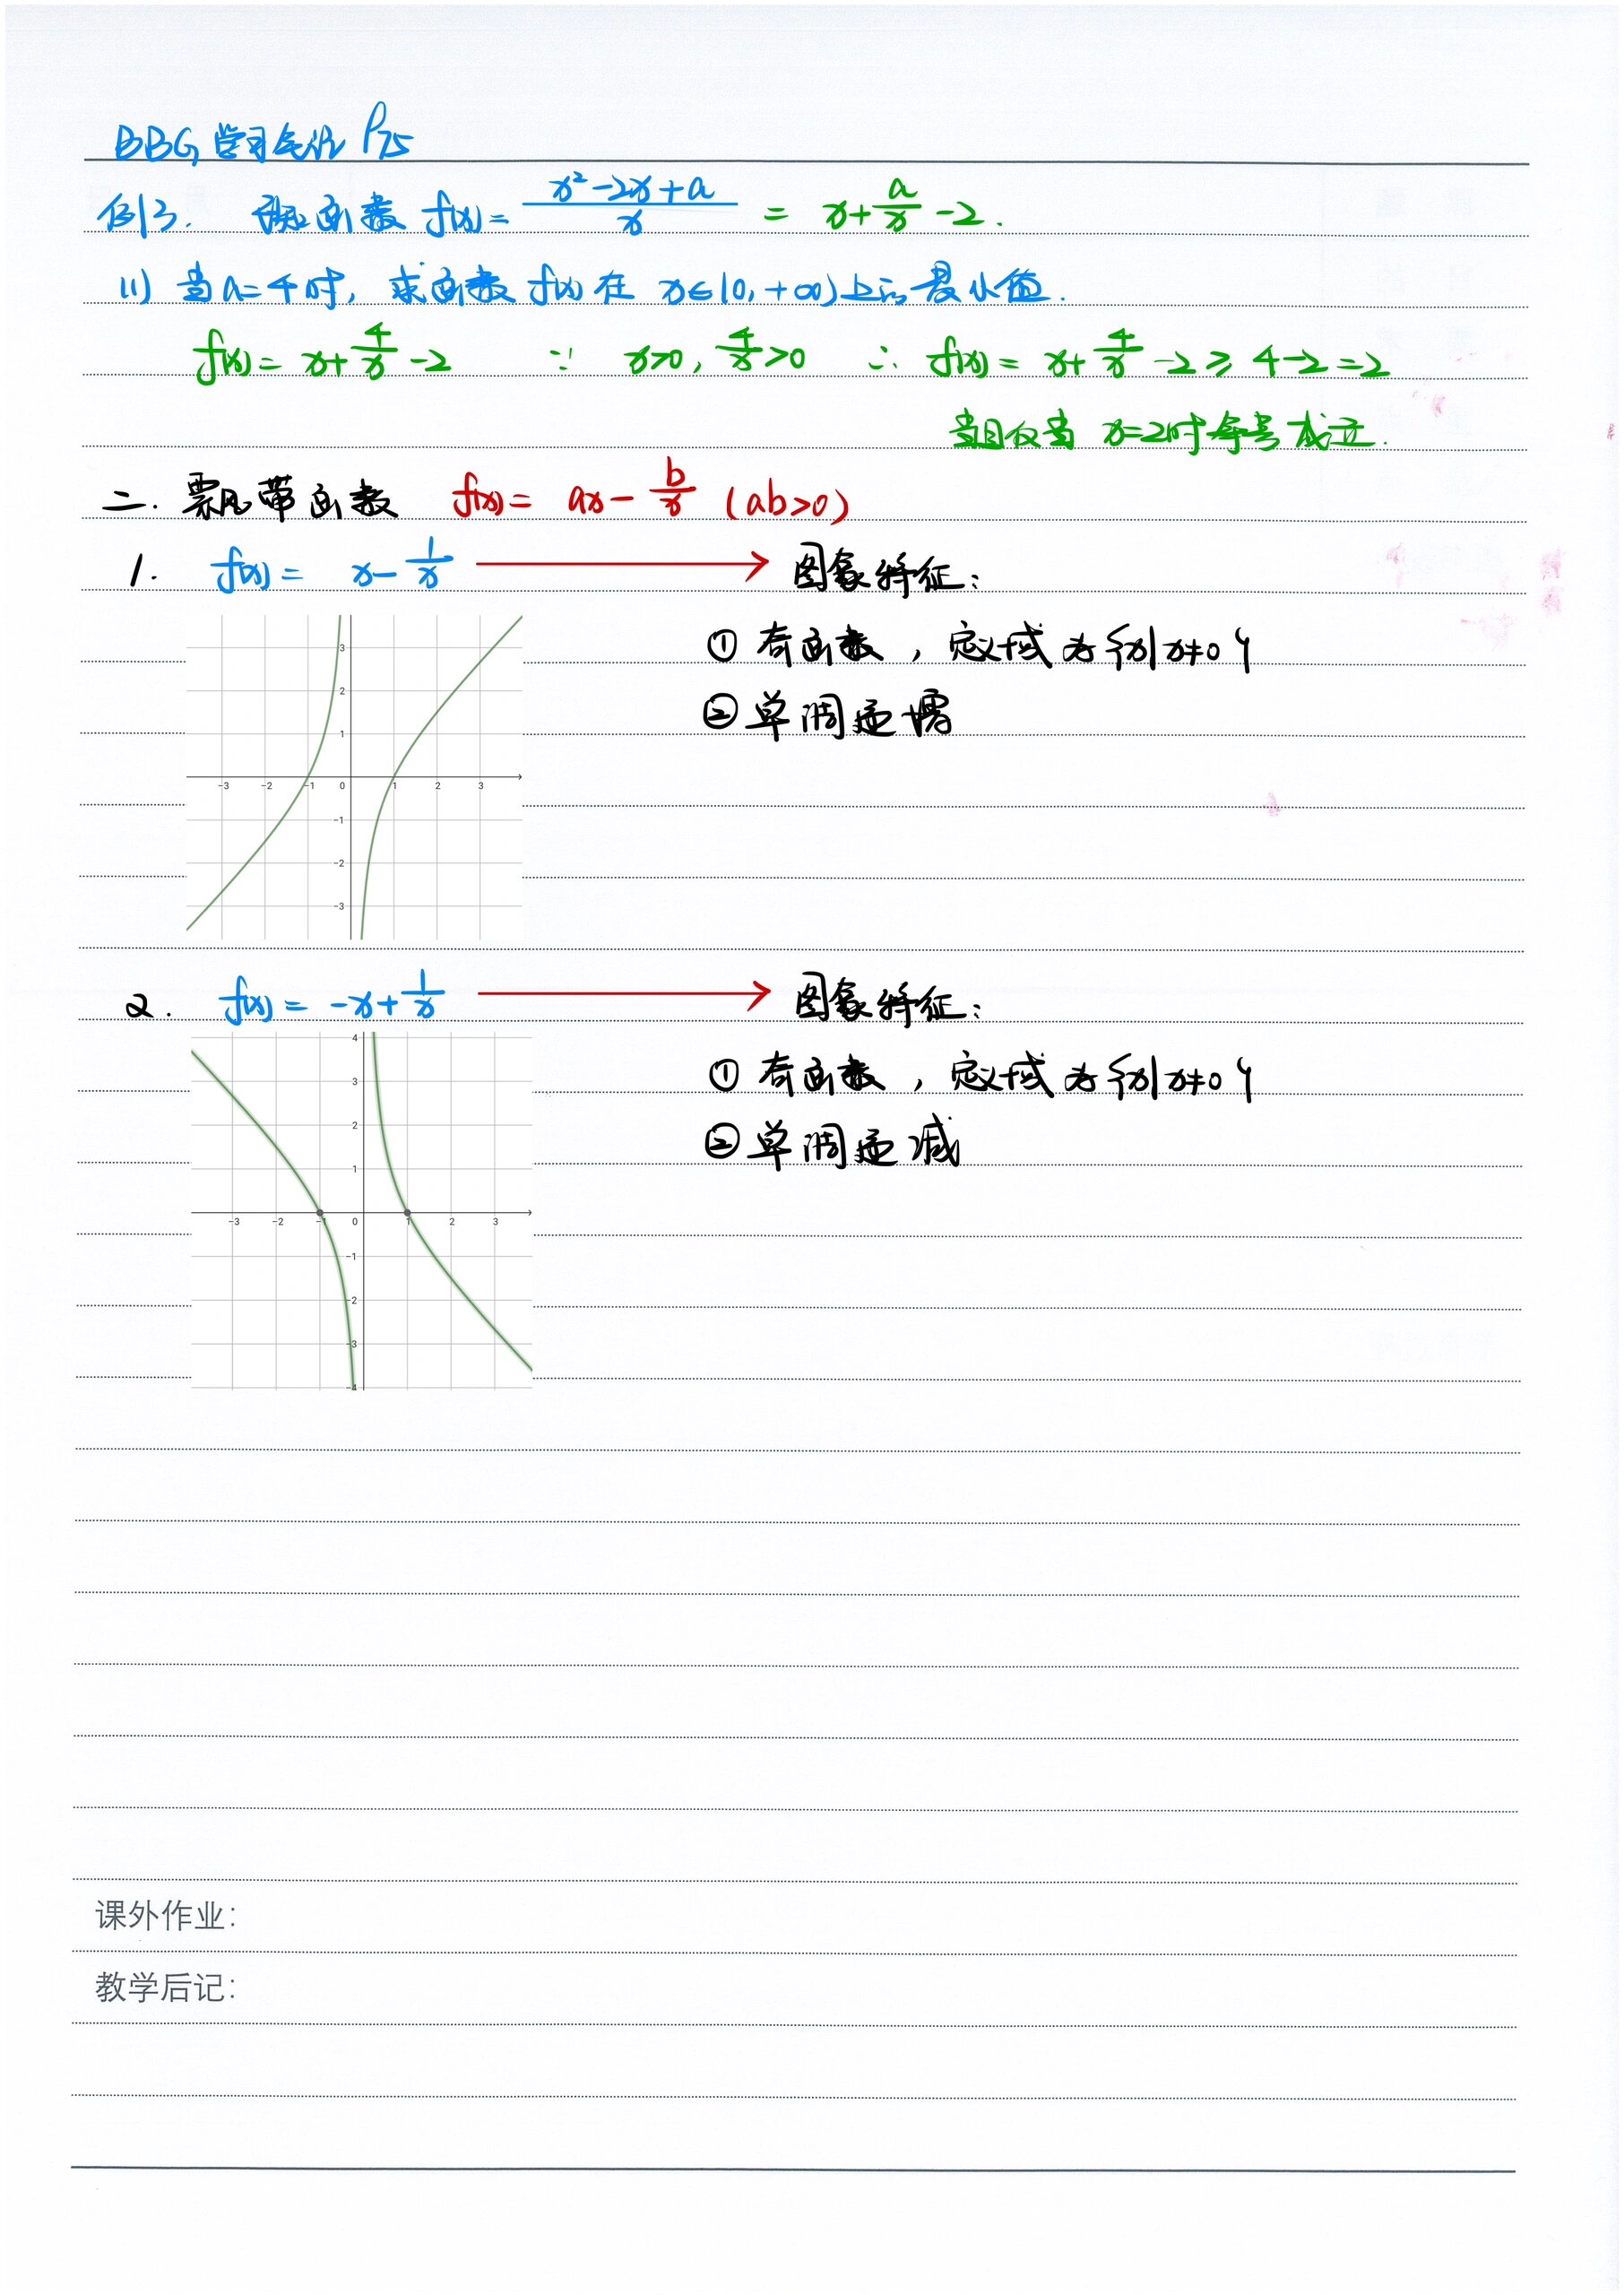 BBG 学习笔记 P75
例3. 已知函数 f(x)= (x²-2x+a)/x = x+a/x-2.
(1) 当a=4时, 求函数 f(x) 在 x∈(0,+∞)上的最小值.
f(x)= x+4/x-2 ∵ x>0, 4/x>0 ∴ f(x)= x+4/x-2≥4-2=2
当且仅当 x=2时等号成立.
二. 飘带函数 f(x)= ax-b/x (ab>0)
1. f(x)= x-1/x → 图象特征:
① 奇函数, 定义域为{x|x≠0}
②单调递增
3
2
1
-3 -2 -1 0 1 2 3
-1
-2
-3
2. f(x)= -x+1/x → 图象特征:
① 奇函数, 定义域为{x|x≠0}
②单调递减
4
3
2
1
-3 -2 -1 0 1 2 3
-1
-2
-3
-4
课外作业:
教学后记: